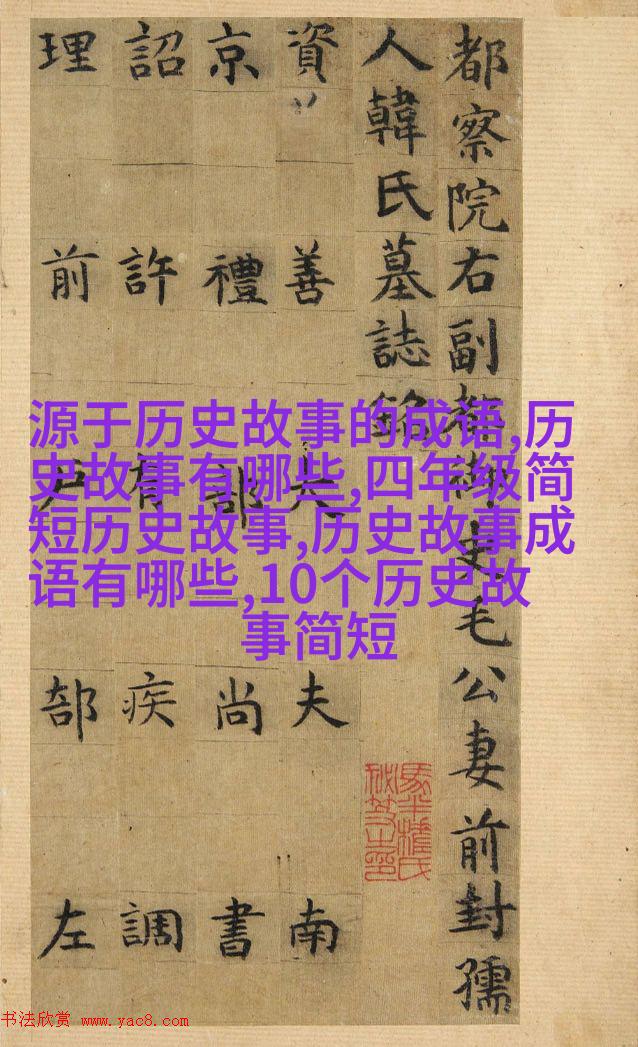 都察院右副都御史毛公妻前封孺
人韓氏墓誌銘
資善大夫南
京禮部尚書
詔許有疾調
理前户部左
源于历史故事的成语,历
史故事有哪些,四年级简
短历史故事,历史故事成
语有哪些,10个历史故
事简短
书法欣赏 www.yac8.com